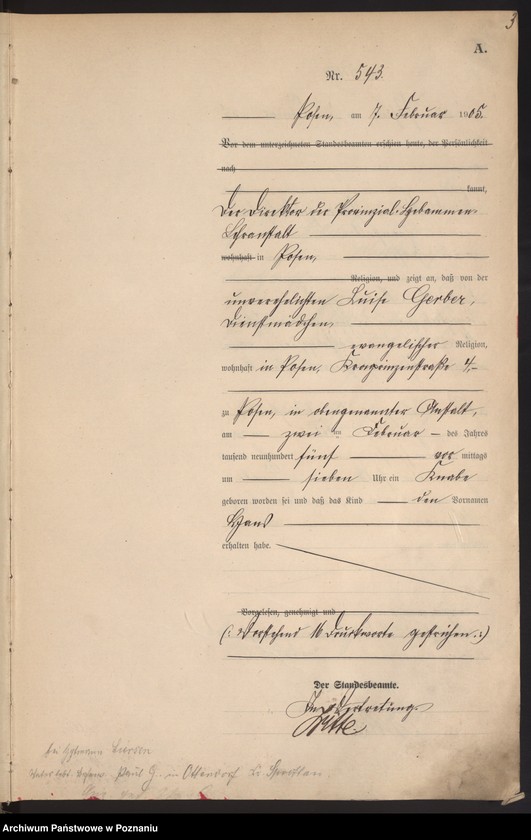 3
A.
Nr. 543.
Posen, am 7. Februar 1905.
Vor dem unterzeichneten Standesbeamten erschien heute, der Persönlichkeit
nach
kannt,
Der Direktor der Provinzial-Hebammen-
Lehranstalt
wohnhaft in Posen,
Religion, und zeigt an, daß von der
unverehelichten Luise Gerber,
Dienstmädchen,
evangelischer Religion,
wohnhaft in Posen, Kronprinzenstraße 4,
zu Posen, in obengenannter Anstalt,
am zwei ten Februar des Jahres
tausend neunhundert fünf vor mittags
um sieben Uhr ein Knabe
geboren worden sei und daß das Kind den Vornamen
Hans
erhalten habe.
Vorgelesen, genehmigt und
(: Vorstehend 16 Druckworte gestrichen. :)
Der Standesbeamte.
In Vertretung
Paul G. in Ottendorf
Archiwum Państwowe w Poznaniu